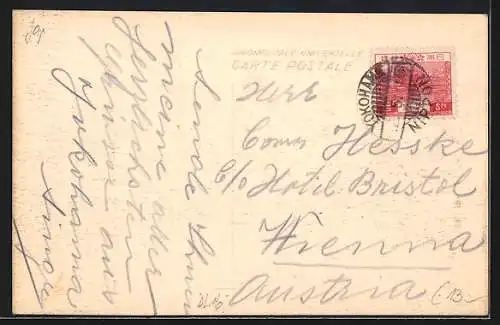 UNION POSTALE UNIVERSELLE
CARTE POSTALE
YOKOHAMA
NIPPON
Herr
Heske
C/o Hotel Bristol
Wienna
Austria
Sende Ihnen
meine aller
herzlichsten
Grüsse aus
Yokohama